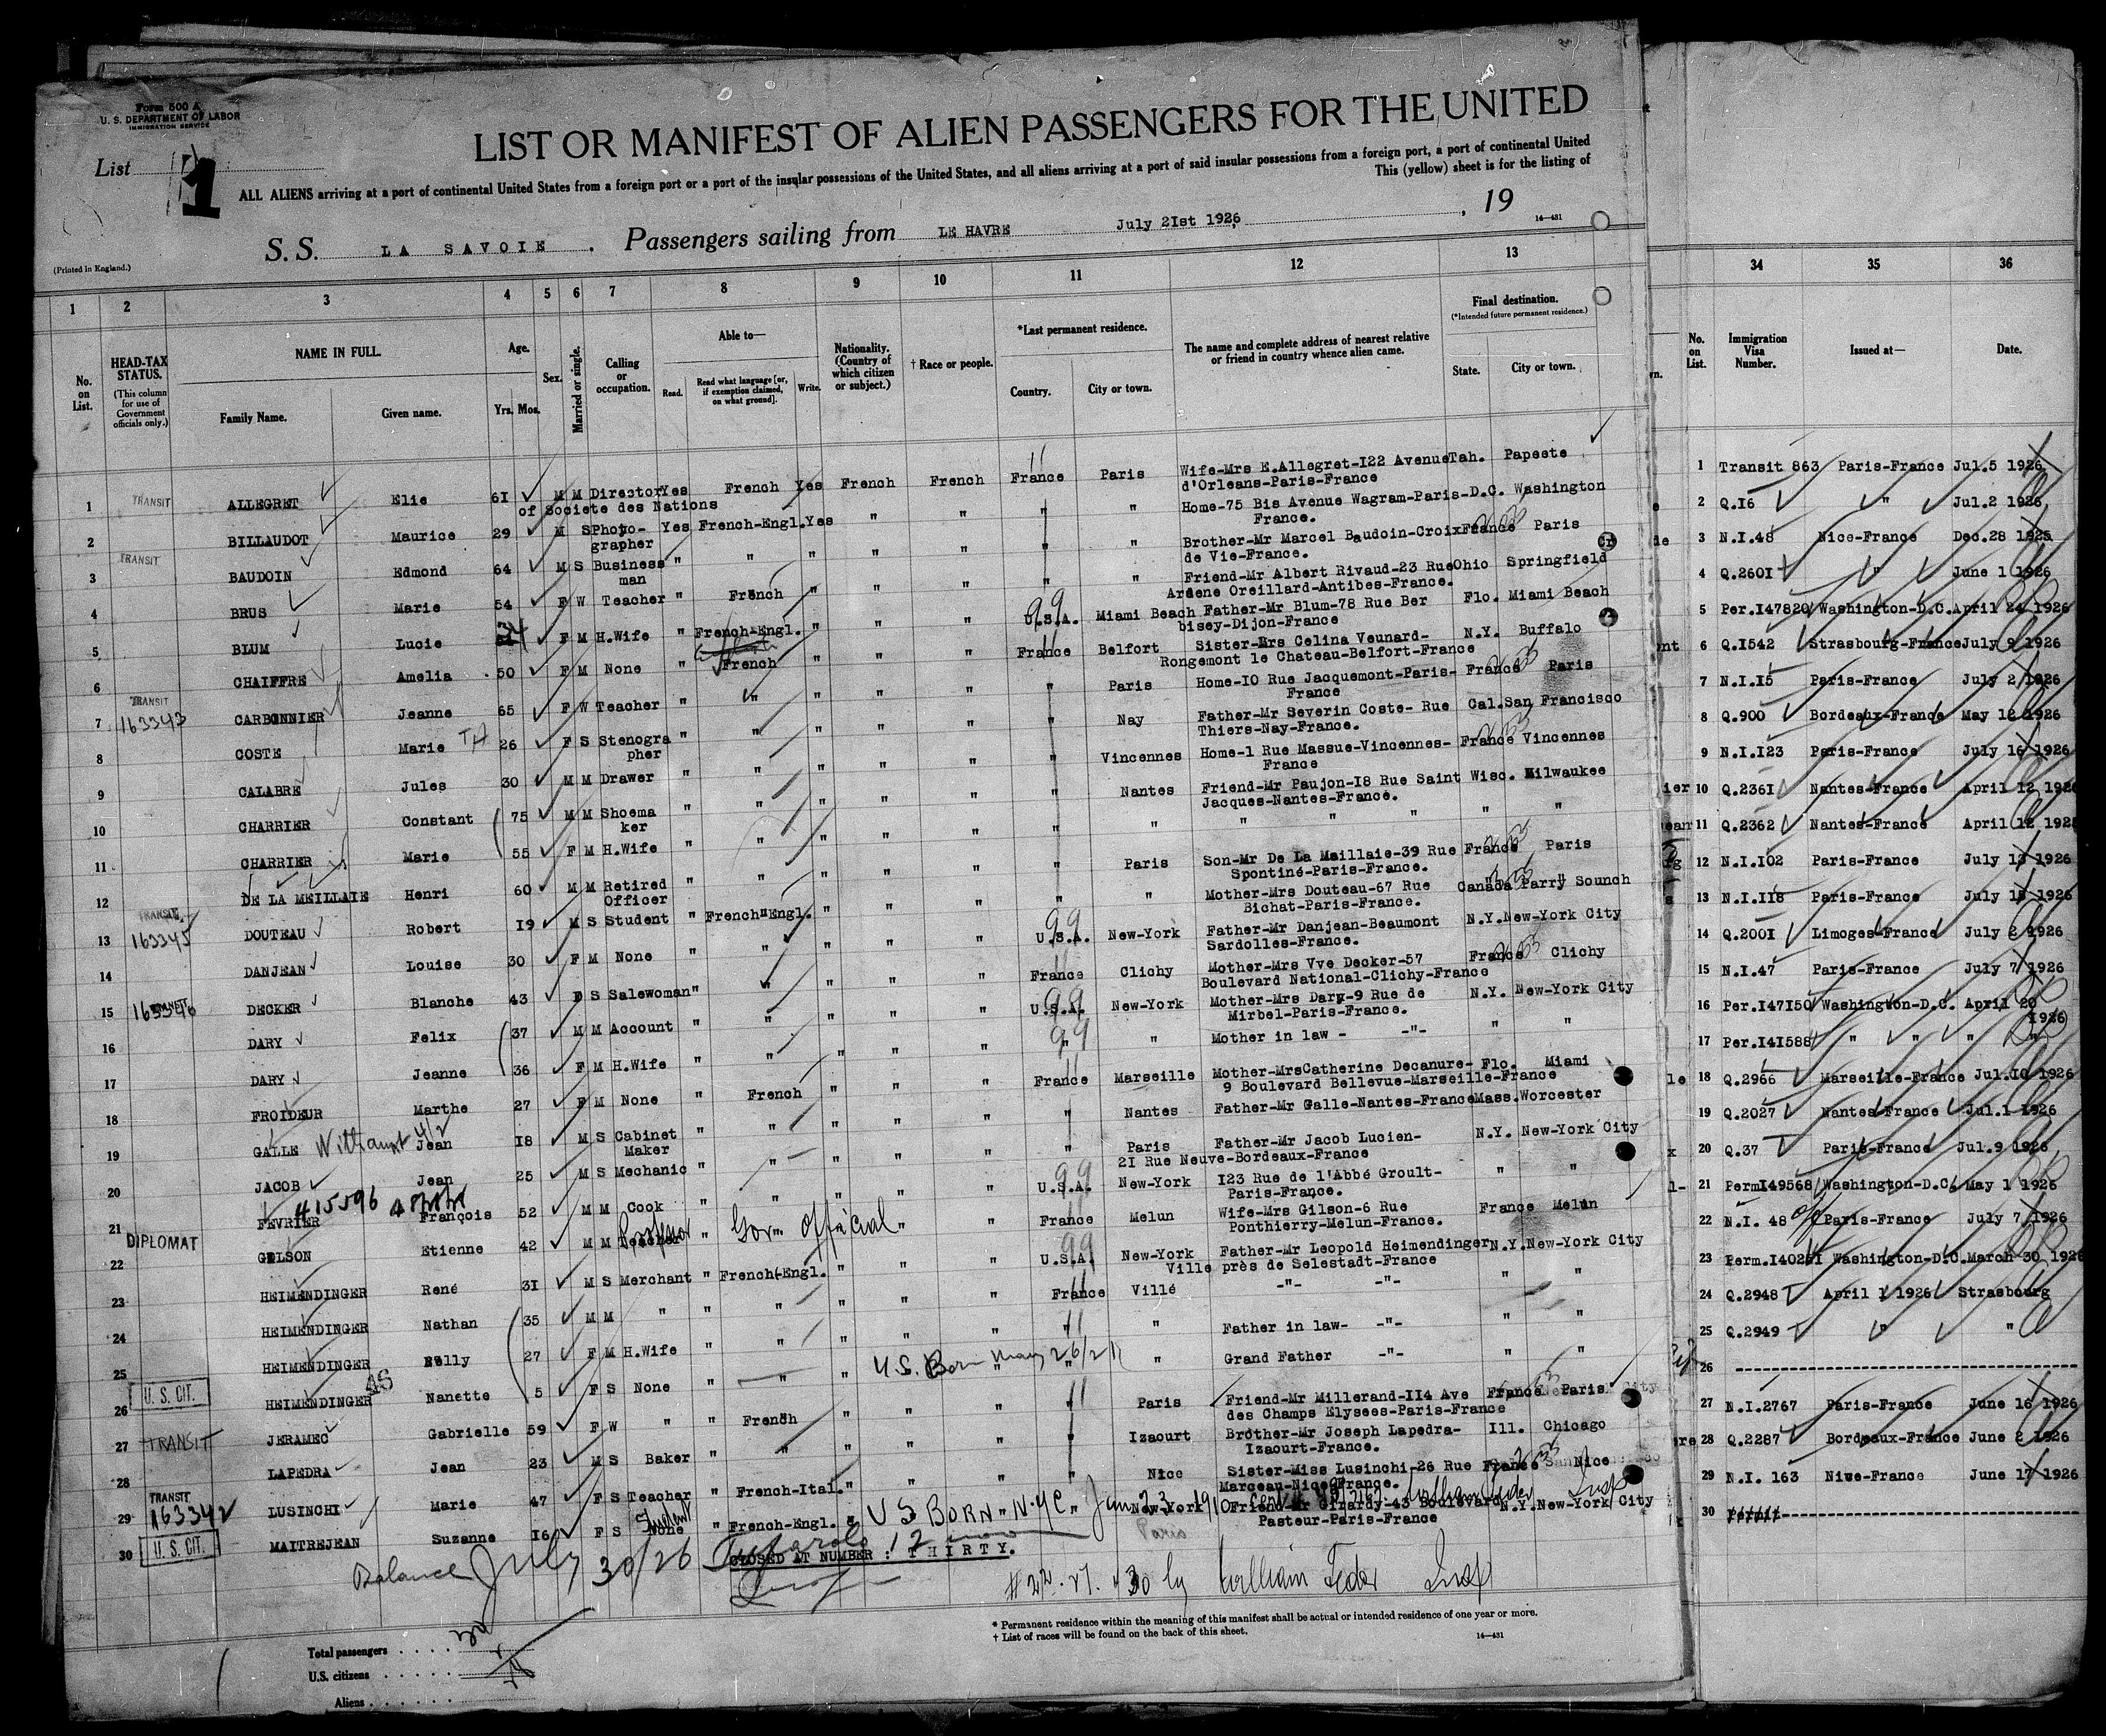 Form 500 A
U. S. DEPARTMENT OF LABOR
IMMIGRATION SERVICE
List 1
LIST OR MANIFEST OF ALIEN PASSENGERS FOR THE UNITED
ALL ALIENS arriving at a port of continental United States from a foreign port or a port of the insular possessions of the United States, and all aliens arriving at a port of said insular possessions from a foreign port, a port of continental United
This (yellow) sheet is for the listing of
S. S. LA SAVOIE . Passengers sailing from LE HAVRE July 21st 1926 , 19
14—431
(Printed in England.)
1 2 3 4 5 6 7 8 9 10 11 12 13 34 35 36
No. on List.
HEAD-TAX STATUS.
(This column for use of Government officials only.)
NAME IN FULL.
Family Name. Given name.
Age.
Yrs. Mos.
Sex.
Married or single.
Calling or occupation.
Able to—
Read. Read what language [or, if exemption claimed, on what ground]. Write.
Nationality. (Country of which citizen or subject.)
† Race or people.
*Last permanent residence.
Country. City or town.
The name and complete address of nearest relative or friend in country whence alien came.
Final destination.
(*Intended future permanent residence.)
State. City or town.
No. on List.
Immigration Visa Number.
Issued at—
Date.
1 TRANSIT ALLEGRET Elie 61 M M Director Yes French Yes French French France Paris Wife-Mrs E.Allegret-122 Avenue Tah. Papeete 1 Transit 863 Paris-France Jul.5 1926
of Societe des Nations d'Orleans-Paris-France
2 BILLAUDOT Maurice 29 M S Photo- Yes French-Engl. Yes " " " " Home-75 Bis Avenue Wagram-Paris- D.C. Washington 2 Q.16 " Jul.2 1926
grapher France.
3 TRANSIT BAUDOIN Edmond 64 M S Business " " " " " " " Brother-Mr Marcel Baudoin-Croix France Paris 3 N.I.48 Nice-France Dec.28 1925
man de Vie-France.
4 BRUS Marie 54 F W Teacher " French " " " " " Friend-Mr Albert Rivaud-23 Rue Ohio Springfield 4 Q.2601 " June 1 1926
Ardene Oreillard-Antibes-France.
5 BLUM Lucie 34 F M H.Wife " French-Engl. " " " U.S.A. Miami Beach Father-Mr Blum-78 Rue Ber Flo. Miami Beach 5 Per.147820 Washington-D.C. April 24 1926
bisey-Dijon-France
6 CHAIFFRE Amelia 50 F M None " French " " " France Belfort Sister-Mrs Celina Veunard- N.Y. Buffalo 6 Q.1542 Strasbourg-France July 9 1926
Rongemont le Chateau-Belfort-France
7 TRANSIT 163343 CARBONNIER Jeanne 65 F W Teacher " " " " " " Paris Home-10 Rue Jacquemont-Paris- France Paris 7 N.I.15 Paris-France July 2 1926
France
8 COSTE Marie 26 F S Stenogra " " " " " " Nay Father-Mr Severin Coste- Rue Cal. San Francisco 8 Q.900 Bordeaux-France May 12 1926
pher Thiers-Nay-France.
9 CALABRE Jules 30 M M Drawer " " " " " " Vincennes Home-1 Rue Massue-Vincennes- France Vincennes 9 N.I.123 Paris-France July 16 1926
France
10 CHARRIER Constant 75 M M Shoema " " " " " " Nantes Friend-Mr Paujon-18 Rue Saint Wisc. Milwaukee 10 Q.2361 Nantes-France April 12 1926
ker Jacques-Nantes-France.
11 CHARRIER Marie 55 F M H.Wife " " " " " " " " " " " " 11 Q.2362 Nantes-France April 12 1926
12 DE LA MEILLAIE Henri 60 M M Retired " " " " " " Paris Son-Mr De La Maillaie-39 Rue France Paris 12 N.I.102 Paris-France July 13 1926
Officer Spontiné-Paris-France.
13 TRANSIT 163345 DOUTEAU Robert 19 M S Student " French-Engl. " " " " " Mother-Mrs Douteau-67 Rue Canada Parry Sounch 13 N.I.118 Paris-France July 15 1926
Bichat-Paris-France.
14 DANJEAN Louise 30 F M None " " " " " U.S.A. New-York Father-Mr Danjean-Beaumont N.Y. New-York City 14 Q.2001 Limoges-France July 2 1926
Sardolles-France.
15 TRANSIT 163346 DECKER Blanche 43 F S Salewoman " " " " " France Clichy Mother-Mrs Vve Decker-57 France Clichy 15 N.I.47 Paris-France July 7 1926
Boulevard National-Clichy-France
16 DARY Felix 37 M M Account " " " " " U.S.A. New-York Mother-Mrs Dary-9 Rue de N.Y. New-York City 16 Per.147150 Washington-D.C. April 20 1926)
Mirbel-Paris-France.
17 DARY Jeanne 36 F M H.Wife " " " " " " " Mother in law - -"- " " 17 Per.141588 " " " "
18 FROIDEUR Marthe 27 F M None " French " " " France Marseille Mother-MrsCatherine Decanure- Flo. Miami 18 Q.2966 Marseille-France Jul.10 1926
9 Boulevard Bellevue-Marseille-France
19 GALLE Jean 18 M S Cabinet " " " " " " Nantes Father-Mr Galle-Nantes-France Mass. Worcester 19 Q.2027 Nantes-France Jul.1 1926
Maker
20 JACOB Jean 25 M S Mechanic " " " " " " Paris Father-Mr Jacob Lucien- N.Y. New-York City 20 Q.37 Paris-France Jul.9 1926
21 Rue Neuve-Bordeaux-France
21 #15596 FEVRIER François 52 M M Cook " " " " " U.S.A. New-York 123 Rue de l'Abbé Groult- " " 21 Perm149568 Washington-D.C. May 1 1926
Paris-France.
22 DIPLOMAT GILSON Etienne 42 M M Professor " Gov. Official " " France Melun Wife-Mrs Gilson-6 Rue France Melun 22 N.I. 48 Paris-France July 7 1926
Ponthierry-Melun-France.
23 HEIMENDINGER René 31 M S Merchant " French-Engl. " " " U.S.A. New-York Father-Mr Leopold Heimendinger N.Y. New-York City 23 Perm.140261 Washington-D.C. March 30 1926
Ville près de Selestadt-France
24 HEIMENDINGER Nathan 35 M M " " " " " " France Villé -"- -"- " " 24 Q.2948 April 1 1926 Strasbourg
25 HEIMENDINGER Nelly 27 F M H.Wife " " " " " " " Father in law- -"- " " 25 Q.2949 " "
26 U. S. CIT. HEIMENDINGER Nanette 5 F S None " " U.S. Born May 26/21 " Grand Father -"- " " 26
27 TRANSIT JERAMEC Gabrielle 59 F W " " French " " " " Paris Friend-Mr Millerand-114 Ave France Paris 27 N.I.2767 Paris-France June 16 1926
des Champs Elysees-Paris-France
28 LAPEDRA Jean 23 M S Baker " " " " " " Izaourt Brother-Mr Joseph Lapedra- Ill. Chicago 28 Q.2287 Bordeaux-France June 2 1926
Izaourt-France.
29 TRANSIT 163342 LUSINCHI Marie 47 F S Teacher " French-Ital. " " " " Nice Sister-Miss Lusinchi-26 Rue France Nice 29 N.I. 163 Nive-France June 17 1926
Marceau-Nice-France.
30 U. S. CIT. MAITREJEAN Suzanne 16 F S Student None " French-Engl. " US BORN N.Y.C. Jan 23 1910 New-York Friend-Mr Girardy-43 Boulevard N.Y. New-York City 30 Permit
Pasteur-Paris-France
CLOSED AT NUMBER : THIRTY.
Balance July 30/26
#22.27. 30 by William Feder Insp
* Permanent residence within the meaning of this manifest shall be actual or intended residence of one year or more.
† List of races will be found on the back of this sheet.
14—431
Total passengers . . . .
U.S. citizens . . . . .
Aliens . . . . . .